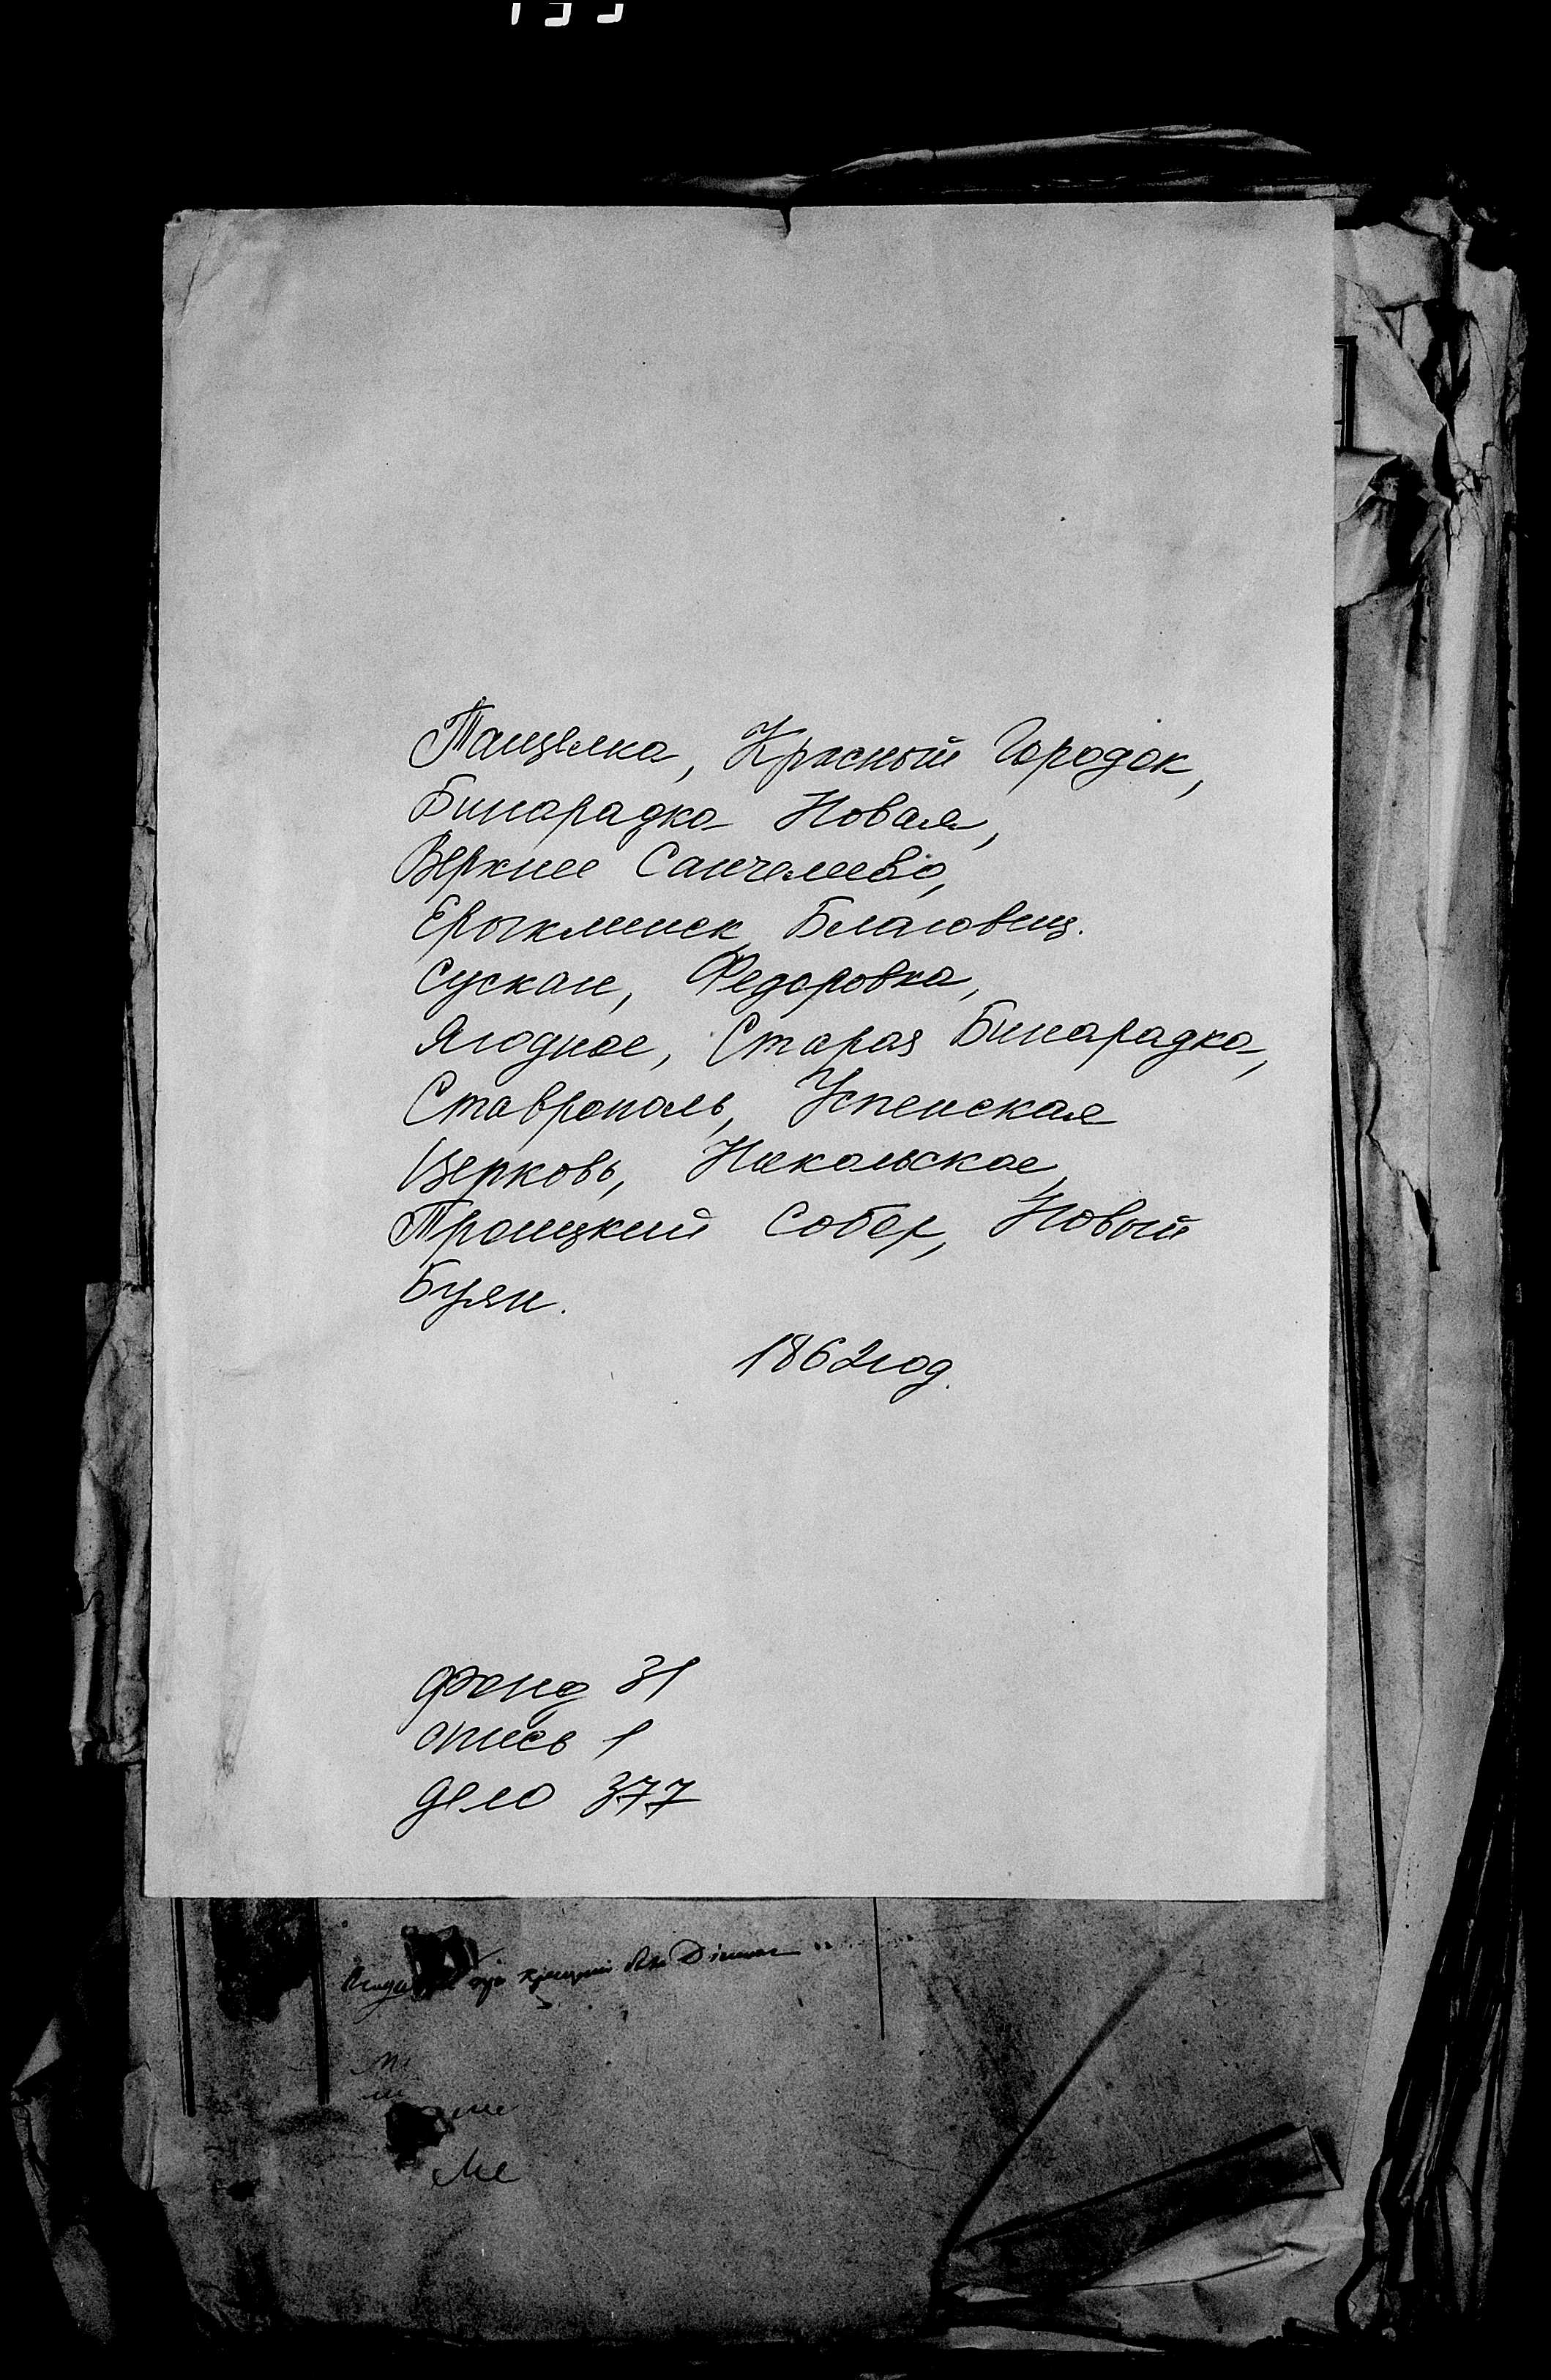 Тащелка, Красный Городок,
Бинарадка Новая,
Верхнее Санчелеево,
Ерыклинск Благовещ.
Сускан, Федоровка,
Ягодное, Старая Бинарадка,
Ставрополь, Успенская
Церковь, Никольское,
Троицкий Собор, Новый
Буян.
1862 год.
фонд 31
опись 1
дело 377